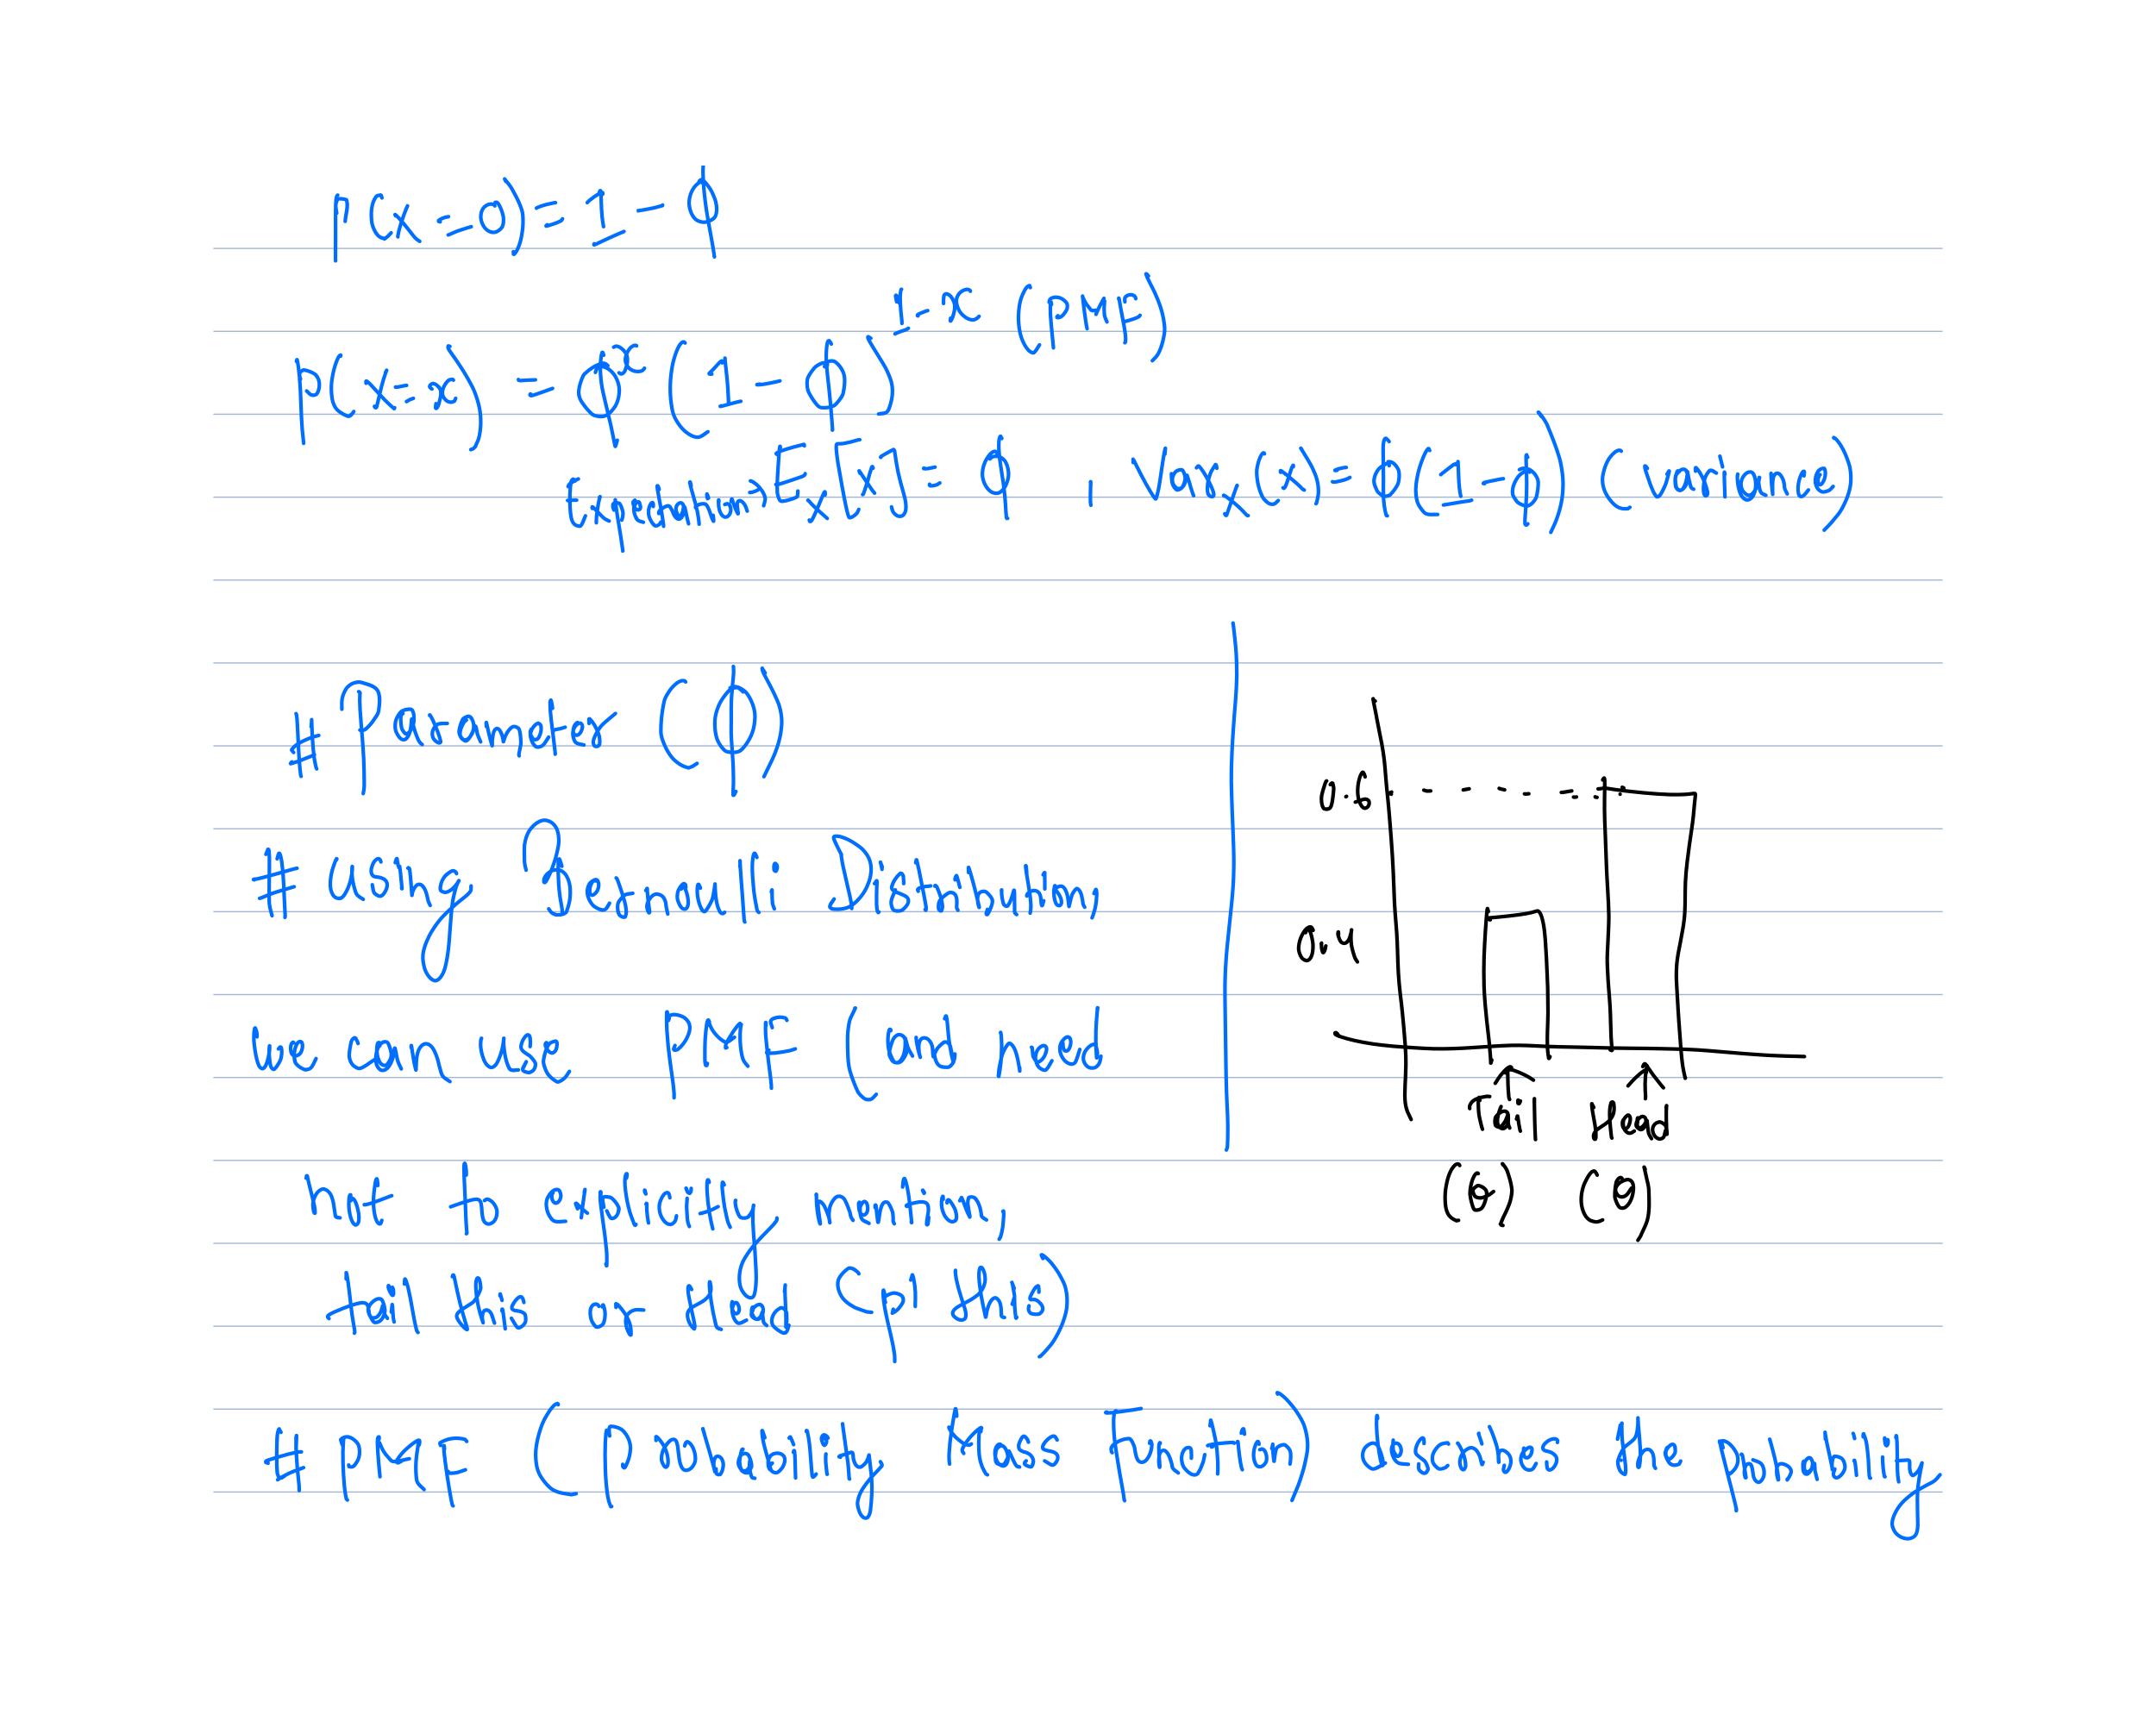 P(x=0) = 1 - ϕ
P(x=x) = ϕ^x (1-ϕ)^(1-x) (PMF)
Expectation → E_x[x] = ϕ , Var_x(x) = ϕ(1-ϕ) (Variance)
# Parameter (ϕ)
# using Bernoulli Distribution,
we can use PMF (and need
not to explicitly mention,
tail this or Head (P) this)
# PMF (probability Mass Function) describes the probability
0.6
0.4
Tail Head
(0) (0)